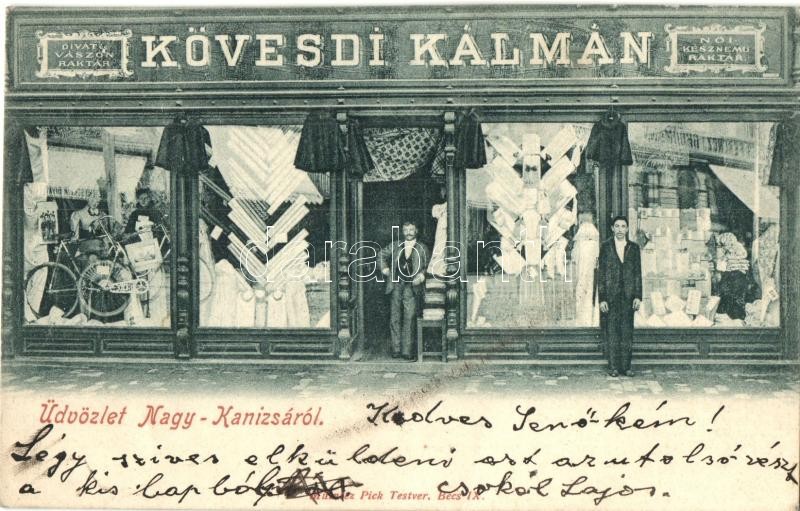 DIVATÚ
VÁSZON
RAKTÁR
KÖVESDI KÁLMÁN
NŐI
KÉSZNEMŰ
RAKTÁR.
darabanth
Üdvözlet Nagy-Kanizsáról.
Kedves Jenő-kém!
Légy szives elküldeni azt az utolsó részt
a kis lapból
csókol Lajos.
Pick Testver, Bécs IX.